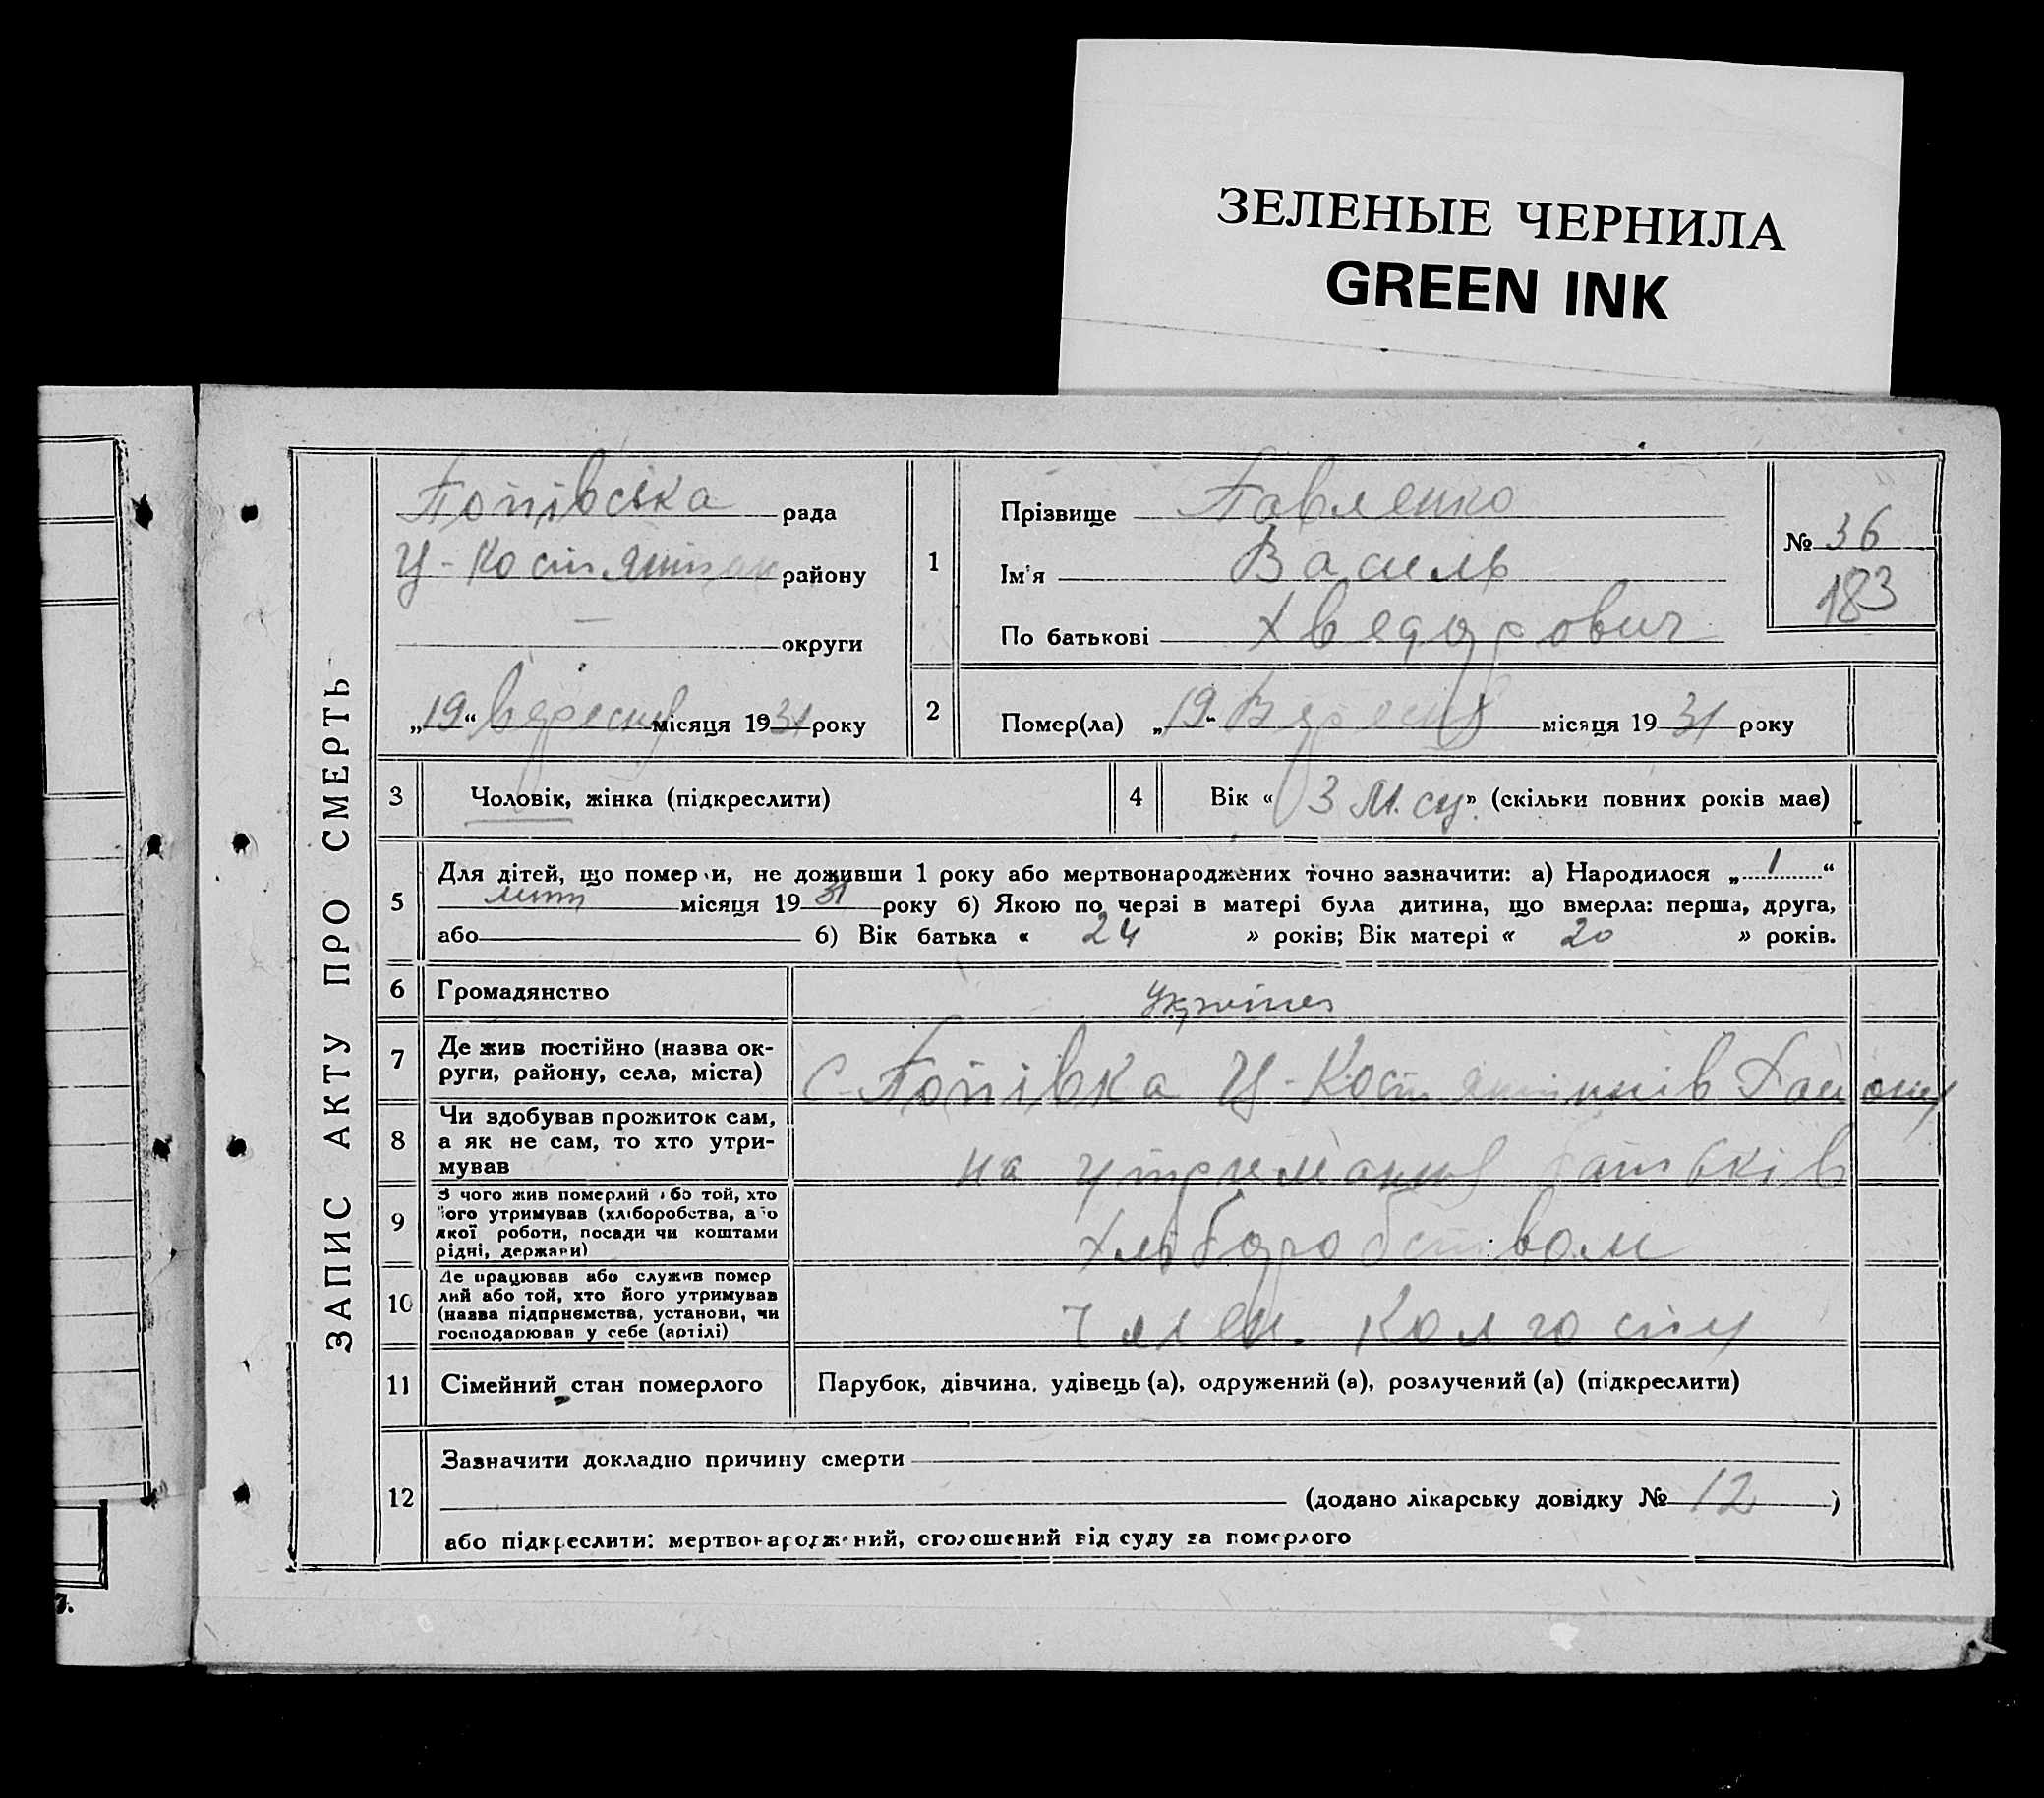 ЗЕЛЕНЫЕ ЧЕРНИЛА
GREEN INK
ЗАПИС АКТУ ПРО СМЕРТЬ
Попівська рада
Ц-Костянтин району
— округи
„19“ вересня місяця 1931 року
1
Прізвище Павленко
Ім'я Василь
По батькові Хведорович
№ 36
183
2
Помер(ла) „19“ Вересня місяця 1931 року
3 Чоловік, жінка (підкреслити)
4 Вік « 3 М.сц. » (скільки повних років має)
5
Для дітей, що померли, не доживши 1 року або мертвонароджених точно зазначити: а) Народилося „1“
місяця 1931 року б) Якою по черзі в матері була дитина, що вмерла: перша, друга,
або б) Вік батька « 24 » років; Вік матері « 20 » років.
6 Громадянство
7 Де жив постійно (назва ок-
руги, району, села, міста)
С-Попівка Ц-Костянтинів Району
8 Чи здобував прожиток сам,
а як не сам, то хто утри-
мував
на утримання батьків
9 З чого жив померлий або той, хто
його утримував (хліборобства, або
якої роботи, посади чи коштами
рідні, держави)
Хліборобством
10 Де працював або служив помер
лий або той, хто його утримував
(назва підприємства, установи, чи
господарював у себе (артілі)
Член. Колгоспу
11 Сімейний стан померлого Парубок, дівчина, удівець (а), одружений (а), розлучений (а) (підкреслити)
12
Зазначити докладно причину смерти
(додано лікарську довідку № 12)
або підкреслити: мертвонароджений, оголошений від суду за померлого